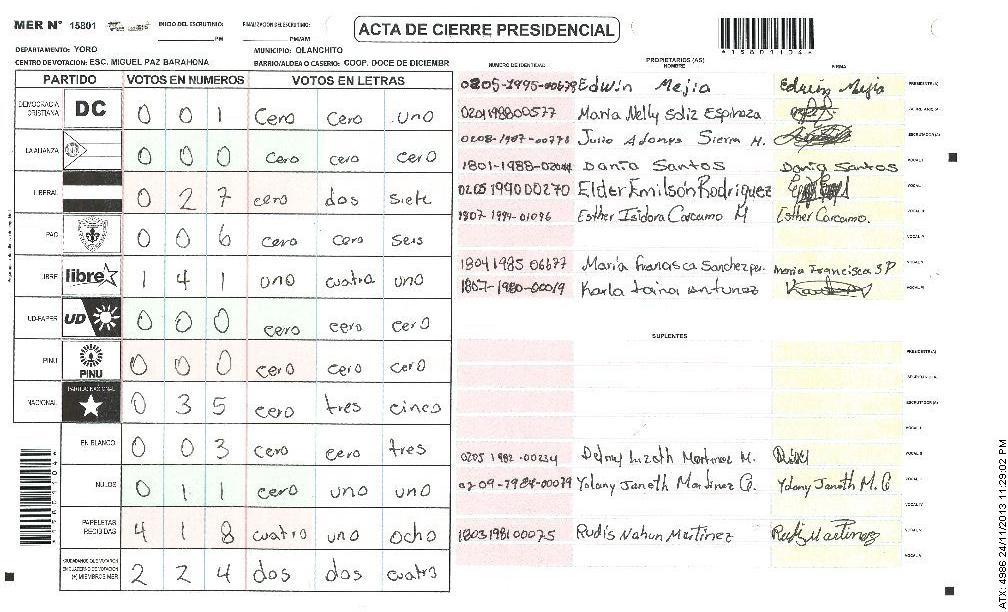 MER Nº 15801 INICIO DEL ESCRUTINIO: PM FINALIZACIÓN DEL ESCRUTINIO: PM/AM
ACTA DE CIERRE PRESIDENCIAL
DEPARTAMENTO: YORO MUNICIPIO: OLANCHITO
CENTRO DE VOTACION: ESC. MIGUEL PAZ BARAHONA BARRIO/ALDEA O CASERIO: COOP. DOCE DE DICIEMBR
PARTIDO VOTOS EN NUMEROS VOTOS EN LETRAS
DEMOCRACIA CRISTIANA DC 0 0 1 cero cero uno
LA ALIANZA 0 0 0 cero cero cero
LIBERAL 0 2 7 cero dos siete
PAC 0 0 6 cero cero seis
LIBRE libre 1 4 1 uno cuatro uno
UD-FAPER UD 0 0 0 cero cero cero
PINU PINU 0 0 0 cero cero cero
NACIONAL PARTIDO NACIONAL 0 3 5 cero tres cinco
EN BLANCO 0 0 3 cero cero tres
NULOS 0 1 1 cero uno uno
PAPELETAS RECIBIDAS 4 1 8 cuatro uno ocho
CIUDADANOS QUE VOTARON EN CUADERNO DE VOTACION (+) MIEMBROS MER 2 2 4 dos dos cuatro
PROPIETARIOS (AS)
NUMERO DE IDENTIDAD NOMBRE FIRMA
Edwin Mejia Edwin Mejia PRESIDENTE(A)
0201198800577 Maria Nelly Soliz Espinoza
Julio Adonys Sierra M. ESCRUTADOR(A)
1801-1988-02044 Dania Santos Dania Santos VOCAL I
0205199000270 Elder Emilson Rodriguez VOCAL
1807-1994-01096 Esther Isidora Carcamo M Esther Carcamo.
1804 1985 06677 Maria Francisca Sanchez per. Maria Francisca S P
1807-1980-00019 Karla Antunez
SUPLENTES
PRESIDENTE(A)
ESCRUTADOR(A)
0205 1982-00234 Martinez M.
0209-1984-00079 Yolany Janeth Martinez G. Yolany Janeth M. G
1803198100075 Rudis Nahun Martinez Rudis Martinez
ATX: 4986 24/11/2013 11:29:02 PM